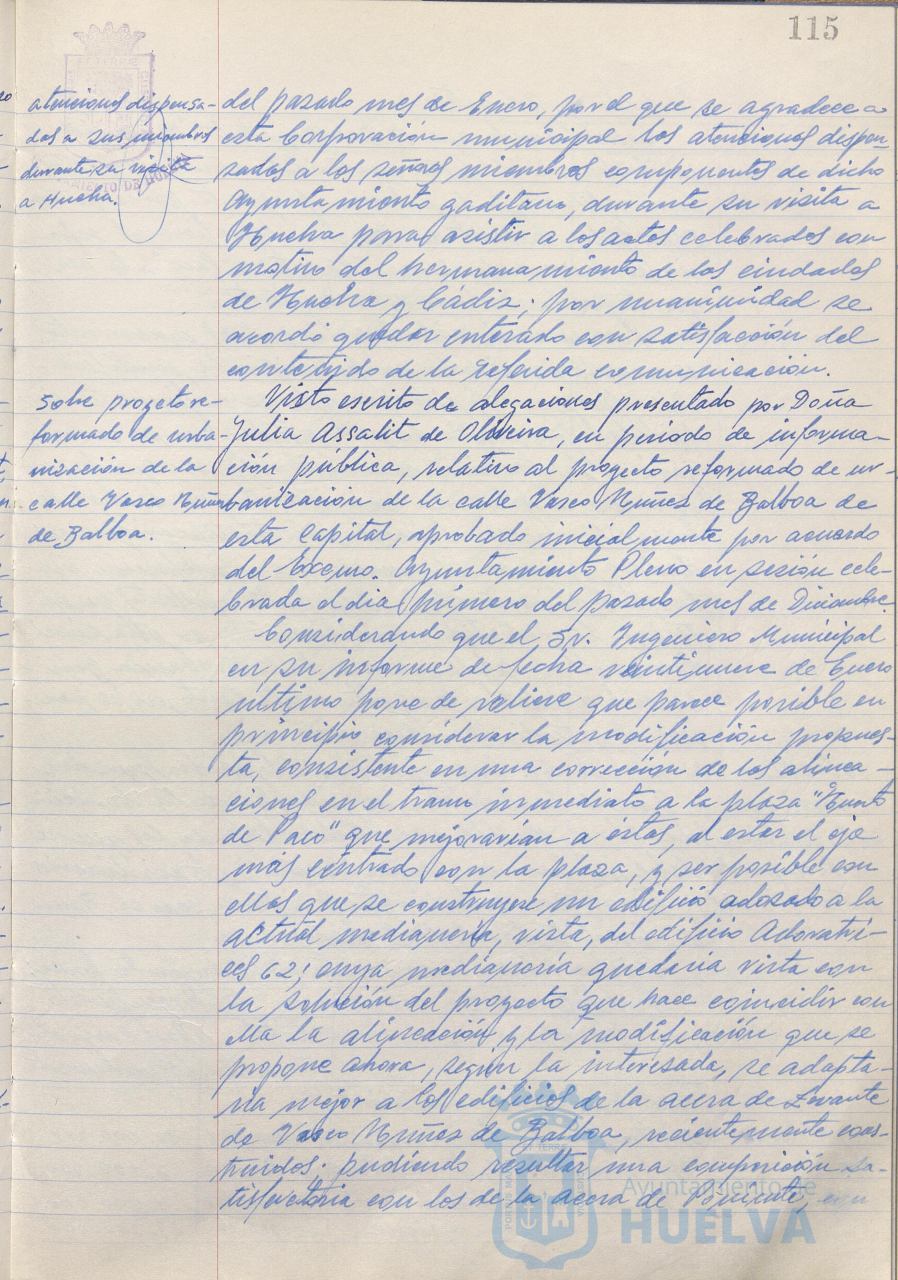 115
atenciones dispensa-
das a sus miembros
durante su visita
a Huelva.
del pasado mes de Enero, por el que se agradece a
esta Corporación municipal las atenciones dispen
sadas a los señores miembros componentes de dicho
Ayuntamiento gaditano, durante su visita a
Huelva para asistir a los actos celebrados con
motivo del hermanamiento de las ciudades
de Huelva y Cádiz; por unanimidad se
acordó quedar enterado con satisfacción del
contenido de la referida comunicación.
Sobre proyecto re-
formado de urba-
nización de la
calle Vasco Núñez
de Balboa.
Visto escrito de alegaciones presentado por Doña
Julia Assalit de Oliveira, en periodo de informa-
ción pública, relativo al proyecto reformado de ur-
banización de la calle Vasco Núñez de Balboa de
esta Capital, aprobado inicialmente por acuerdo
del Excmo. Ayuntamiento Pleno en sesión cele-
brada el dia primero del pasado mes de Diciembre.
Considerando que el Sr. Ingeniero Municipal
en su informe de fecha veintinueve de Enero
ultimo pone de relieve que parece posible en
principio considerar la modificación propues-
ta, consistente en una corrección de las alinea-
ciones en el tramo inmediato a la plaza "Huerto
de Paco" que mejorarian a éstas, al estar el eje
más centrado con la plaza, y ser posible con
ellas que se construyese un edificio adosado a la
actual medianería, vista, del edificio Adoratri-
ces 62; cuya medianería quedaria vista con
la solución del proyecto que hace coincidir con
ella la alineación y la modificación que se
propone ahora, segun la interesada, se adapta-
ria mejor a los edificios de la acera de Levante
de Vasco Núñez de Balboa, recientemente cons-
truidos; pudiendo resultar una composición sa-
tisfactoria con los de la acera de Poniente,
Ayuntamiento de
HUELVA